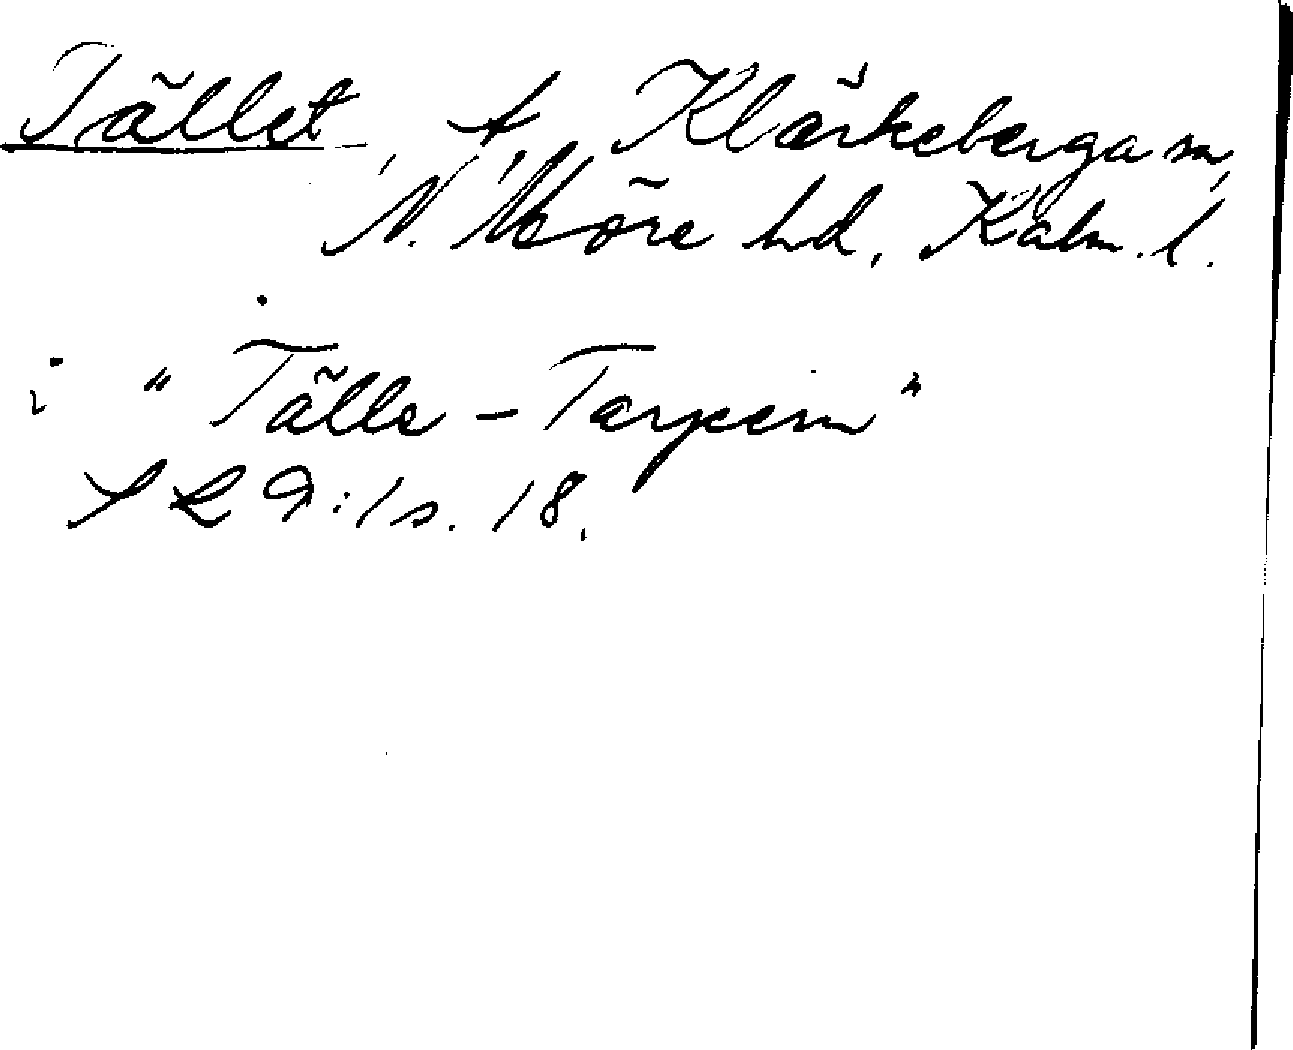 Tället, t, Kläckeberga sn,
N. Möre hd, Kalm. l.
i "Tälle-Torpem"
SLD:1 s. 18.